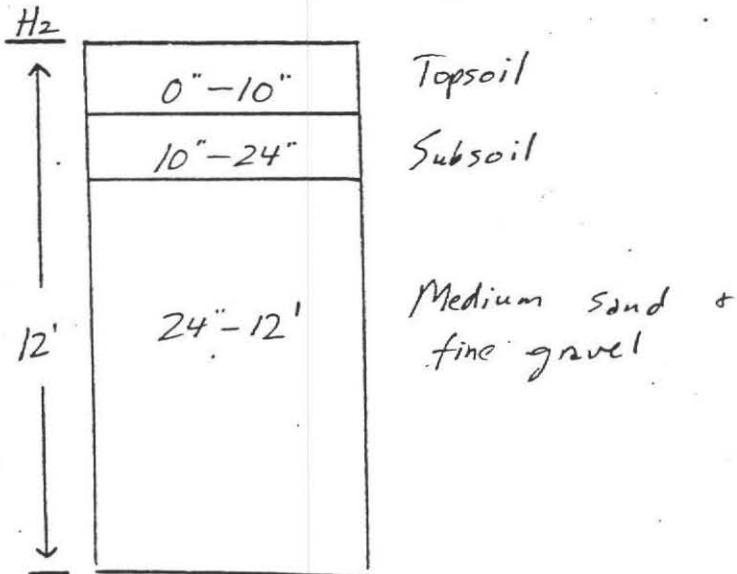 H2
0"-10" Topsoil
10"-24" Subsoil
12' 24"-12' Medium sand &
fine gravel